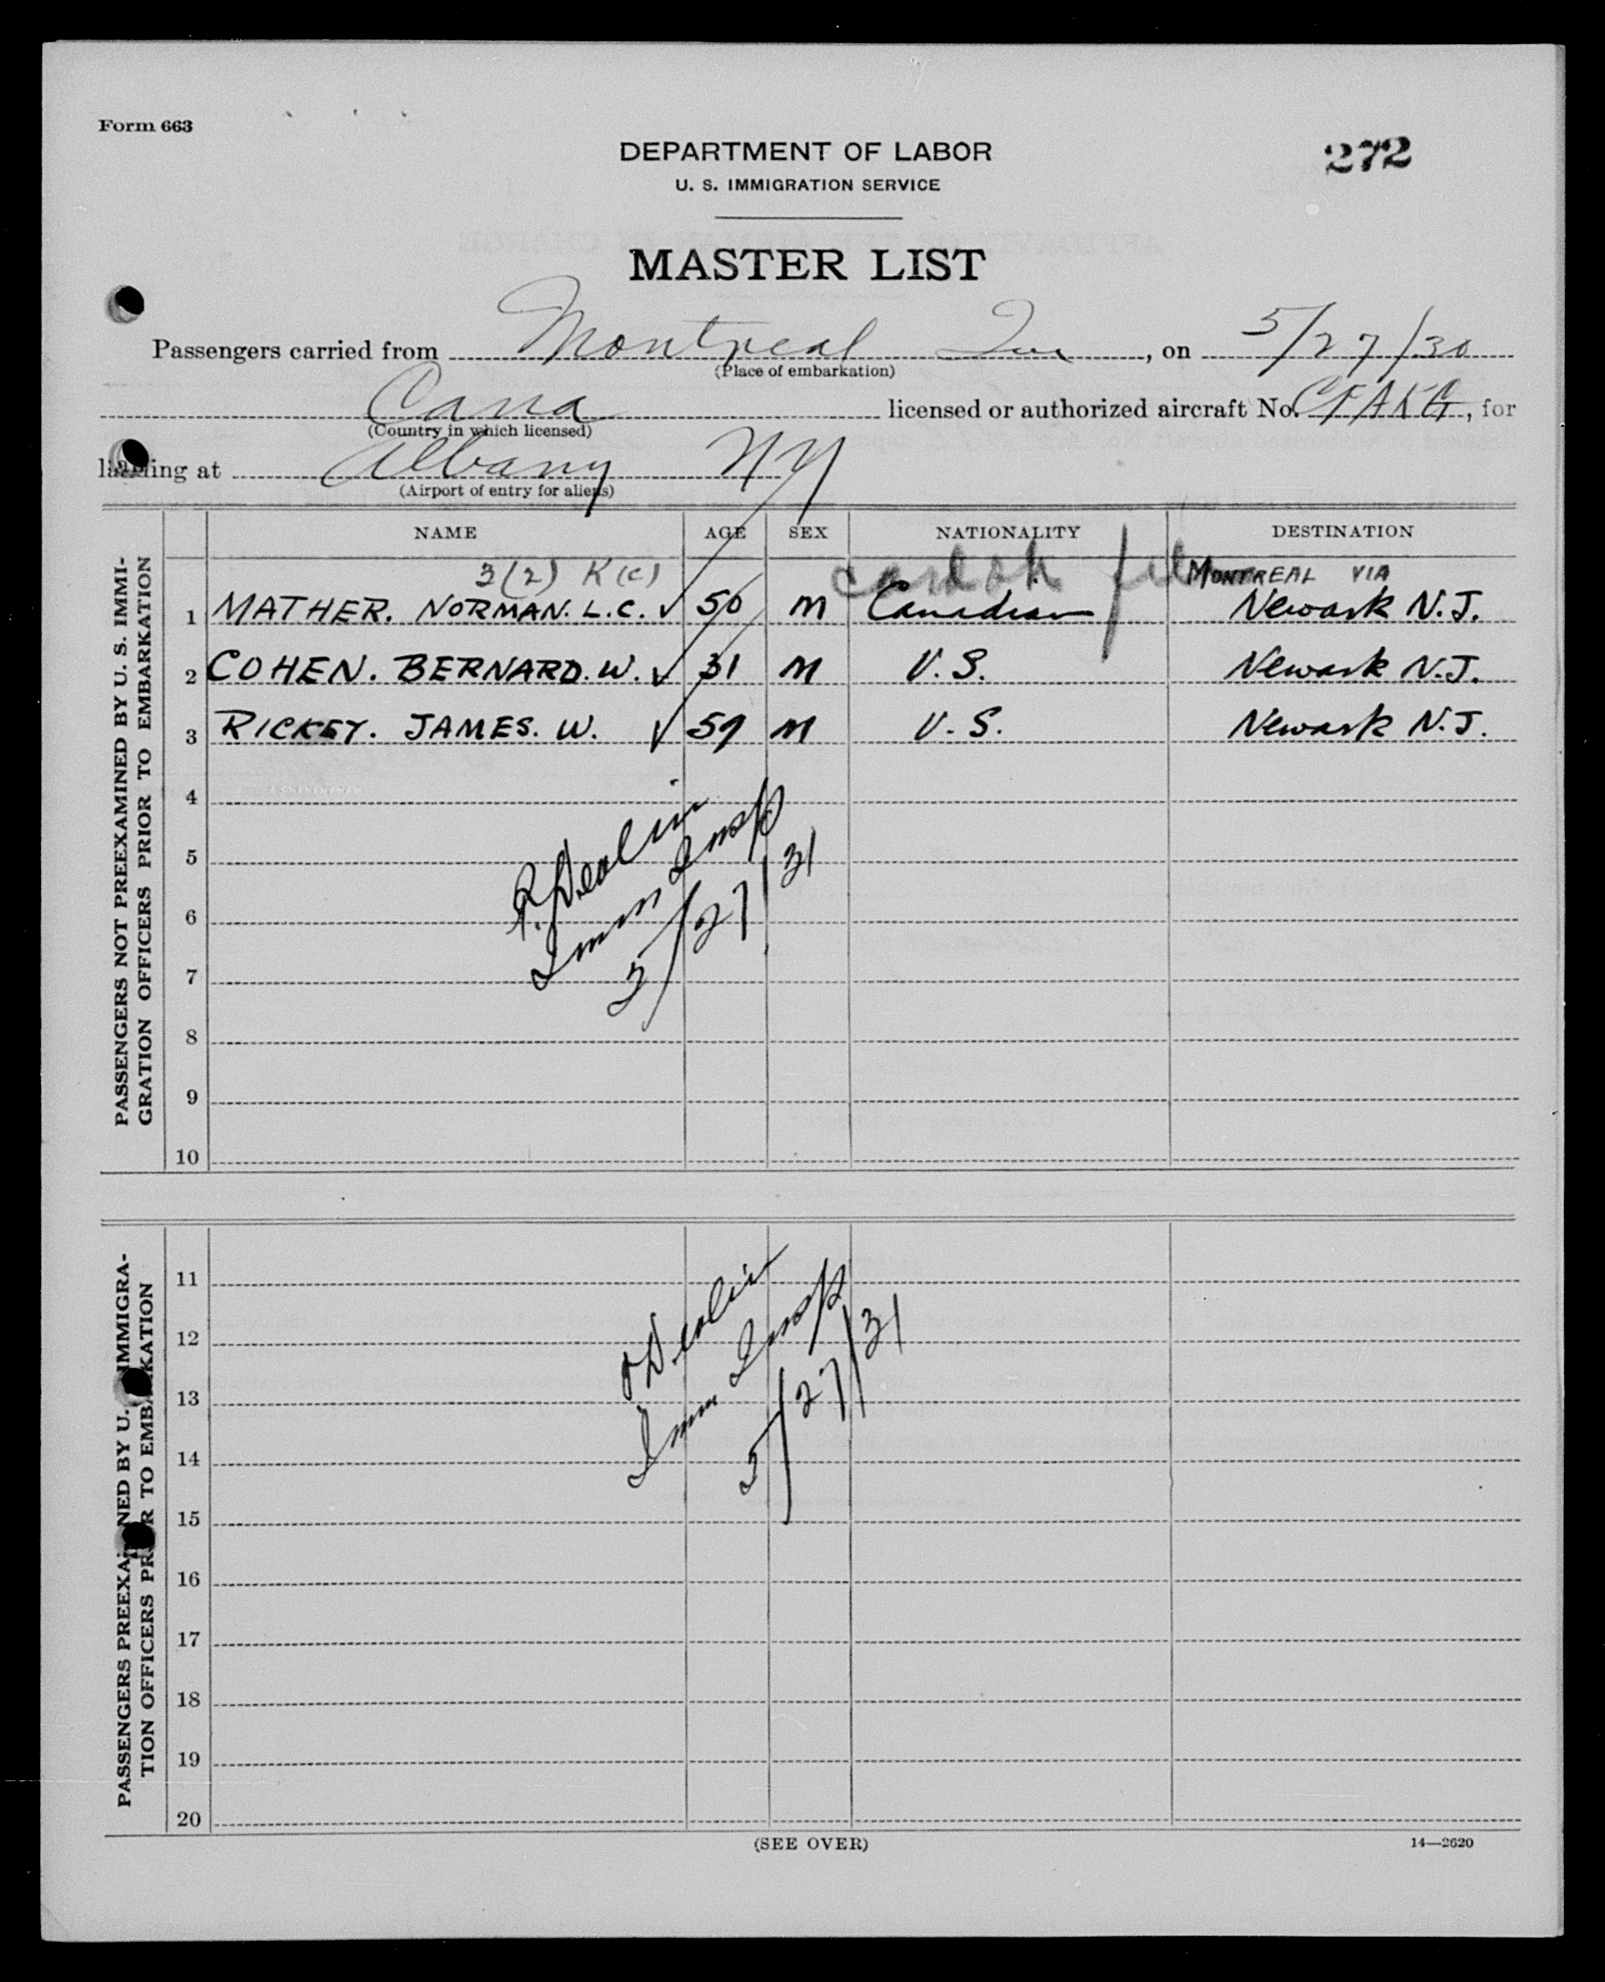 Form 663
DEPARTMENT OF LABOR
272
U. S. IMMIGRATION SERVICE
MASTER LIST
Passengers carried from Montreal Que, on 5/27/30
(Place of embarkation)
Cana licensed or authorized aircraft No. CFAKG, for
(Country in which licensed)
landing at Albany NY
(Airport of entry for aliens)
NAME AGE SEX NATIONALITY DESTINATION
3(2) K(c) card ok MONTREAL VIA
1 MATHER. NORMAN. L.C. ✓ 50 M Canadian Newark N.J.
2 COHEN. BERNARD. W. ✓ 31 M U.S. Newark N.J.
3 RICKEY. JAMES. W. ✓ 57 M U.S. Newark N.J.
4
5
6
7
8
9
10
P. Devlin
Imm Insp
5/27/31
PASSENGERS NOT PREEXAMINED BY U. S. IMMI-
GRATION OFFICERS PRIOR TO EMBARKATION
11
12
13
14
15
16
17
18
19
20
P Devlin
Imm Insp
5/27/31
PASSENGERS PREEXAMINED BY U. S. IMMIGRA-
TION OFFICERS PRIOR TO EMBARKATION
(SEE OVER)
14—2620